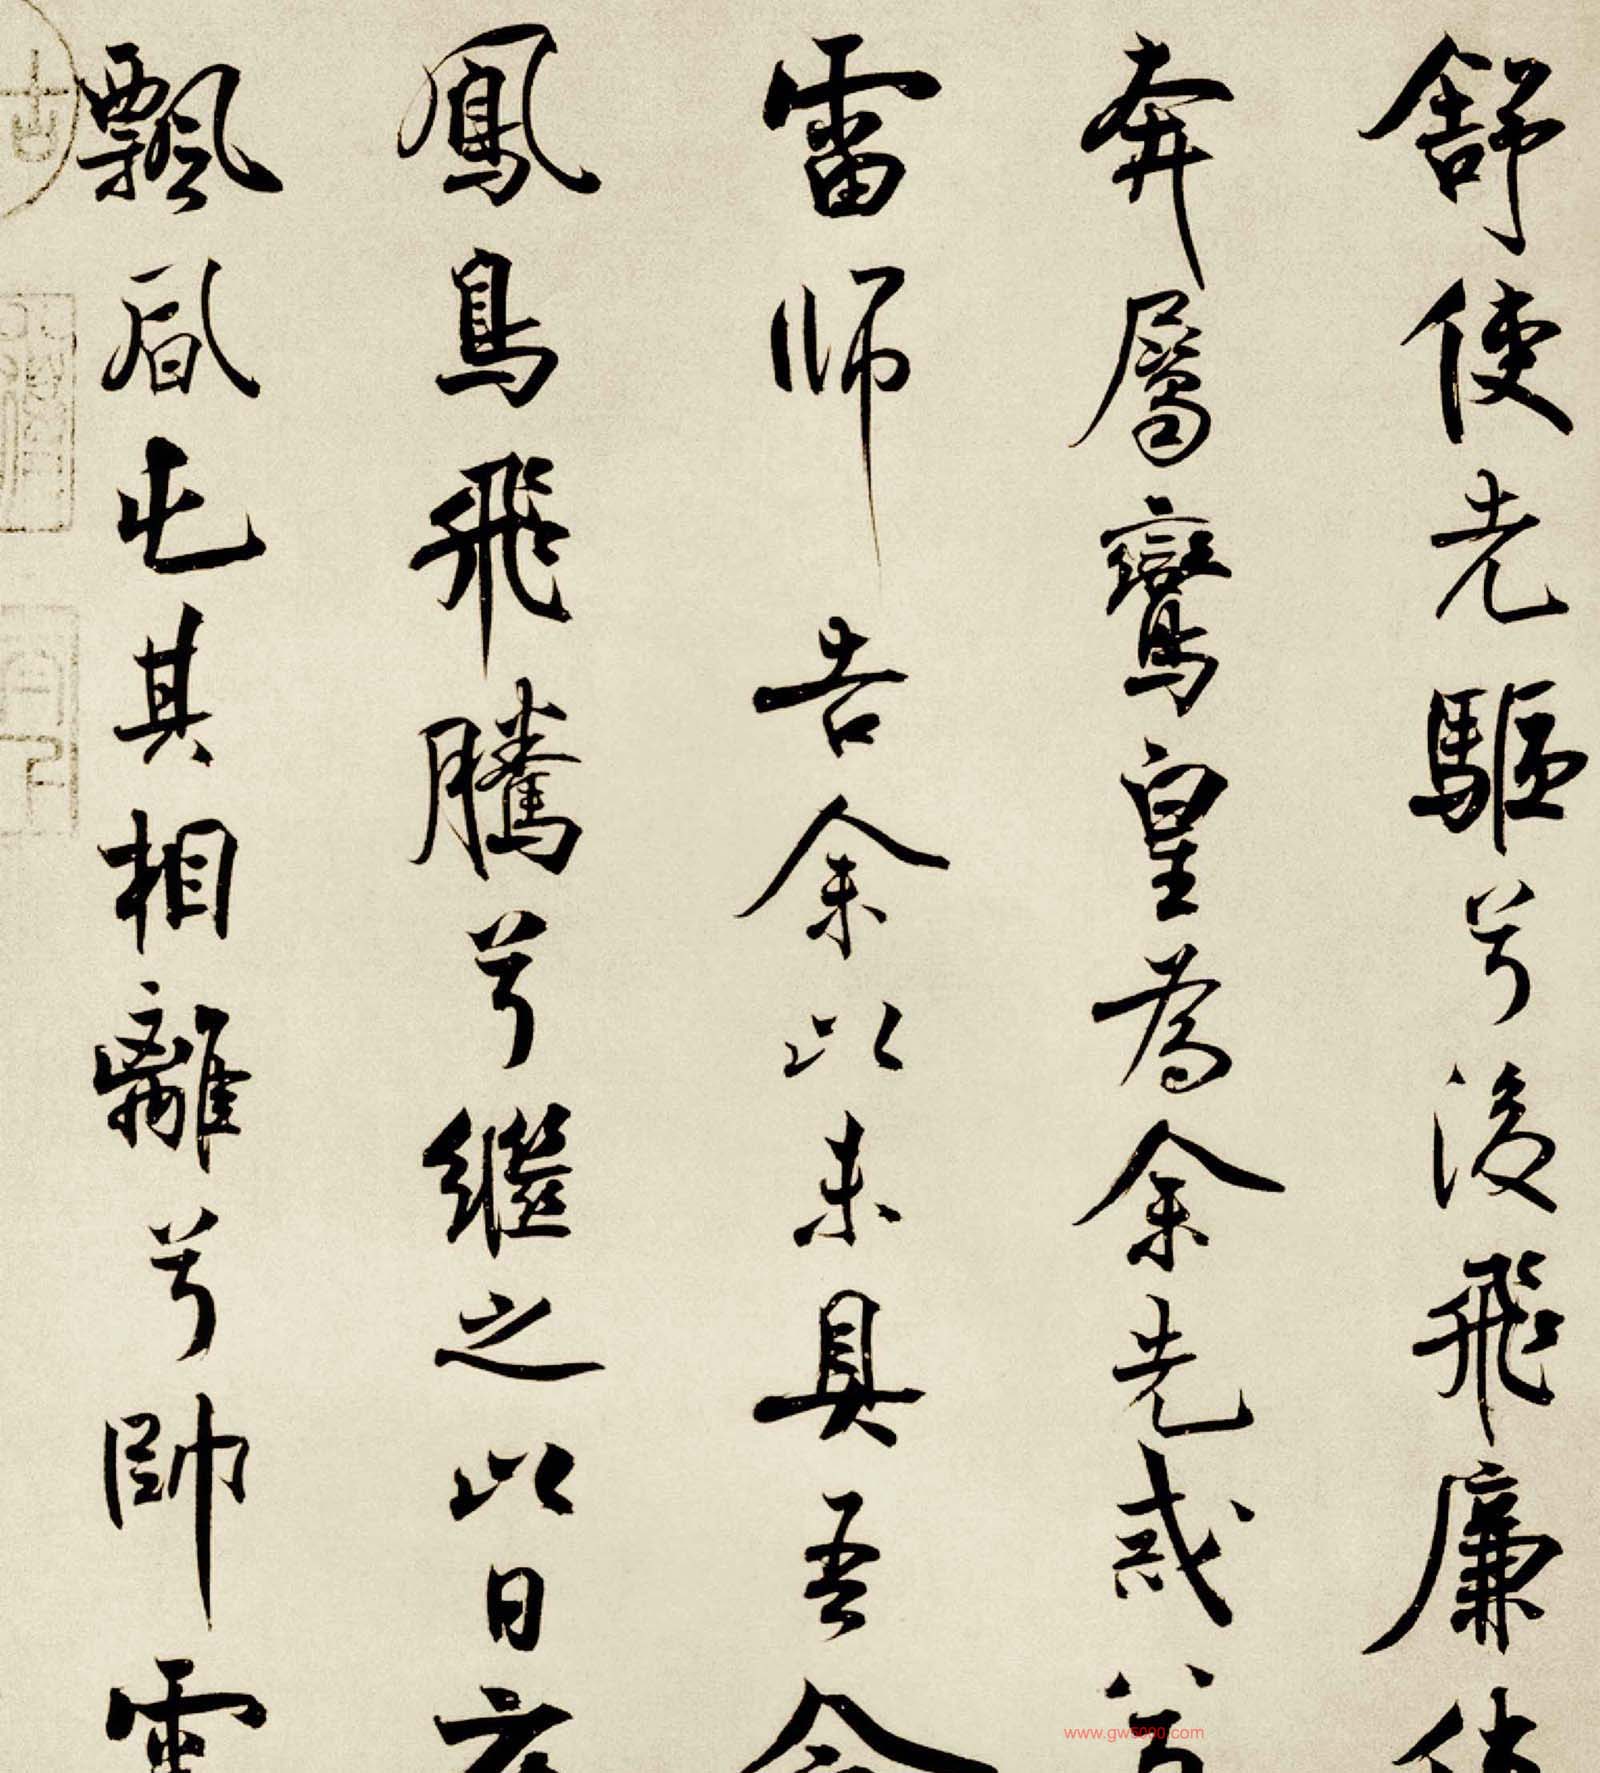 舒使先驅兮後飛廉使
奔屬鸞皇為余先戒兮
雷師告余以未具吾令
鳳鳥飛騰兮繼之以日夜
飄風屯其相離兮帥雲
www.gw5000.com